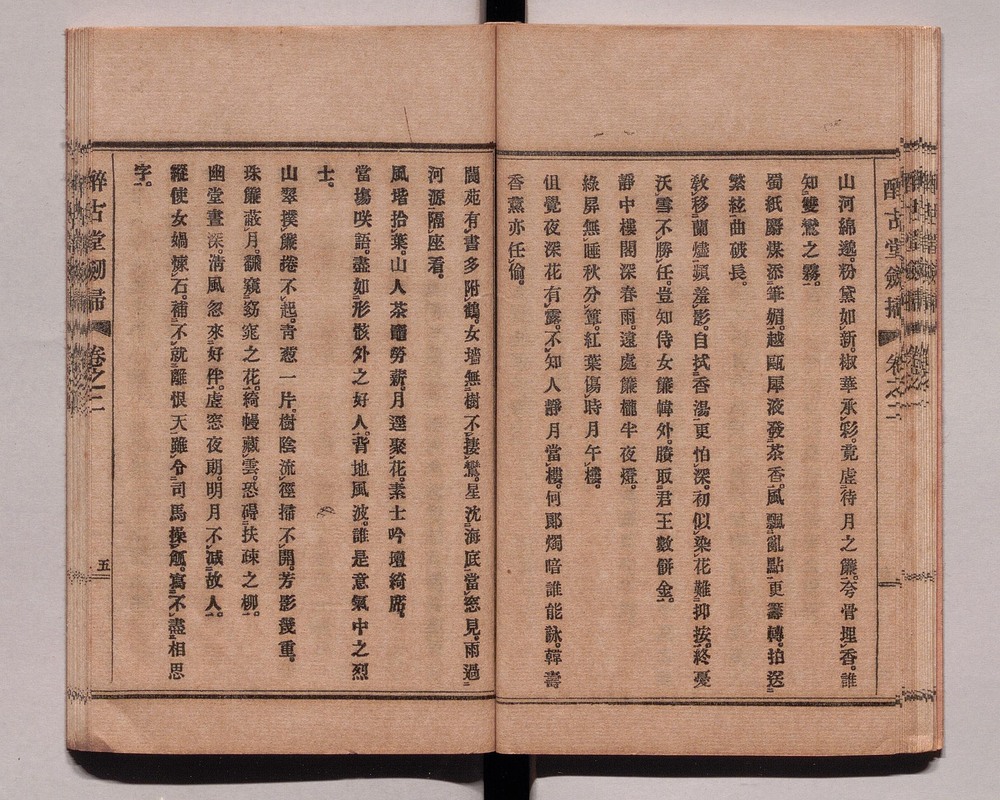 醉古堂劍掃 卷之二
山河綿邈。粉黛如新。椒華承彩。竟虛待月之簾。夸骨埋香。誰
知雙鸞之霧。
蜀紙麝煤添筆媚。越甌犀液發茶香。風飄亂點更籌轉。拍送
繁絃曲破長。
教移蘭燼頻羞影。自拭香湯更怕深。初似染花難抑按。終憂
沃雪不勝任。豈知侍女簾幃外。賸取君王數餠金。
靜中樓閣深春雨。遠處簾櫳半夜燈。
綠屏無睡秋分簟。紅葉傷時月午樓。
但覺夜深花有露。不知人靜月當樓。何郞燭暗誰能詠。韓壽
香薰亦任偸。
閬苑有書多附鶴。女墻無樹不捿鸞。星沈海底當窓見。雨過
河源隔座看。
風堦拾葉。山人茶竈勞薪。月逕聚花。素士吟壇綺席。
當塲咲語。盡如形骸外之好人。背地風波。誰是意氣中之烈
士。
山翠撲簾捲不起。靑葱一片。樹陰流徑掃不開。芳影幾重。
珠簾蔽月。翻窺窈窕之花。綺幔藏雲。恐碍扶疎之柳。
幽堂晝深。淸風忽來好伴。虛窓夜朗。明月不減故人。
縱使女媧煉石。補不就離恨天。雖令司馬操觚。寫不盡相思
字。
醉古堂劍掃 卷之二 五